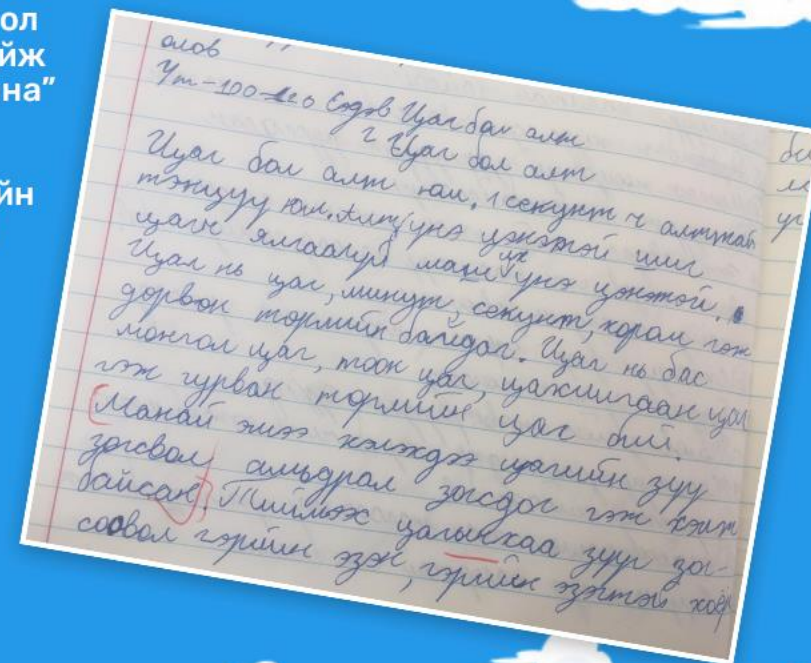 ол
йж
на"
йн
олов
Ут-100-
Сэдэв Цаг бол алт
2 Цаг бол алт
Цаг бол алт юм. 1 секунт ч алттай
тэнцүү юм. Алт үнэ цэнэтэй шиг
цагч ялгаагүй маш их үнэ цэнэтэй.
Цаг нь цаг, минут, секунт, хором гэж
дөрвөн төрлийн байдаг. Цаг нь бас
монгол цаг, тоон цаг, цахилгаан цаг
гэж гурван төрлийн цаг бий.
Манай эмээ хэлэхдээ цагийн зүү
зогсвол амьдрал зогсдог гэж хэлж
байсан. Тиймээс цагынхаа зүүг зог-
соовол гэрийн эзэн, гэрийн эзэгтэй хоёр